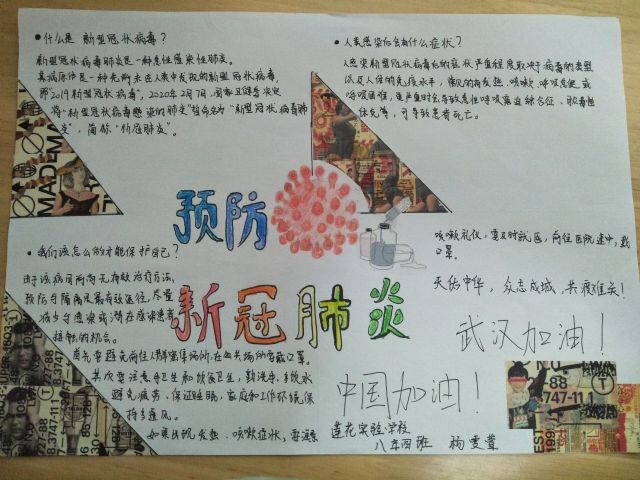 ●什么是 新型冠状病毒?
新型冠状病毒肺炎是一种急性感染性肺炎。
其病原体是一种先前未在人类中发现的新型冠状病毒,
即"2019新型冠状病毒",2020年2月7,国家卫健委决定
将"新型冠状病毒感染的肺炎"暂命名为"新型冠状病毒肺
炎",简称"新冠肺炎"。
●人类感染后会有什么症状?
人感染新型冠状病毒后的症状严重程度取决于病毒的类型
以及人体的免疫水平,常见的有发热、咳嗽、呼吸急促或
呼吸困难,更严重时会导致急性呼吸窘迫综合征、
休克等,可导致患者死亡。
预防
新冠肺炎
●我们该怎么做才能保护自己?
由于该病因尚无有效治疗方法,
预防与隔离是最有效途径,尽量
减少与感染或潜在感染者
接触的机会。
首先要避免前往人群密集场所,在公共场所佩戴口罩。
其次要注意手卫生和饮食卫生,勤洗手、多饮水
避免疲劳,保证睡眠,家庭和工作环境保
持多通风。
如果出现发热、咳嗽症状,要注意
咳嗽礼仪,要及时就医,前往医院途中,戴
口罩。
天佑中华,众志成城,共渡难关!
武汉加油!
中国加油!
莲花实验学校
八年四班 杨雯萱
MADEMA
88
747-11